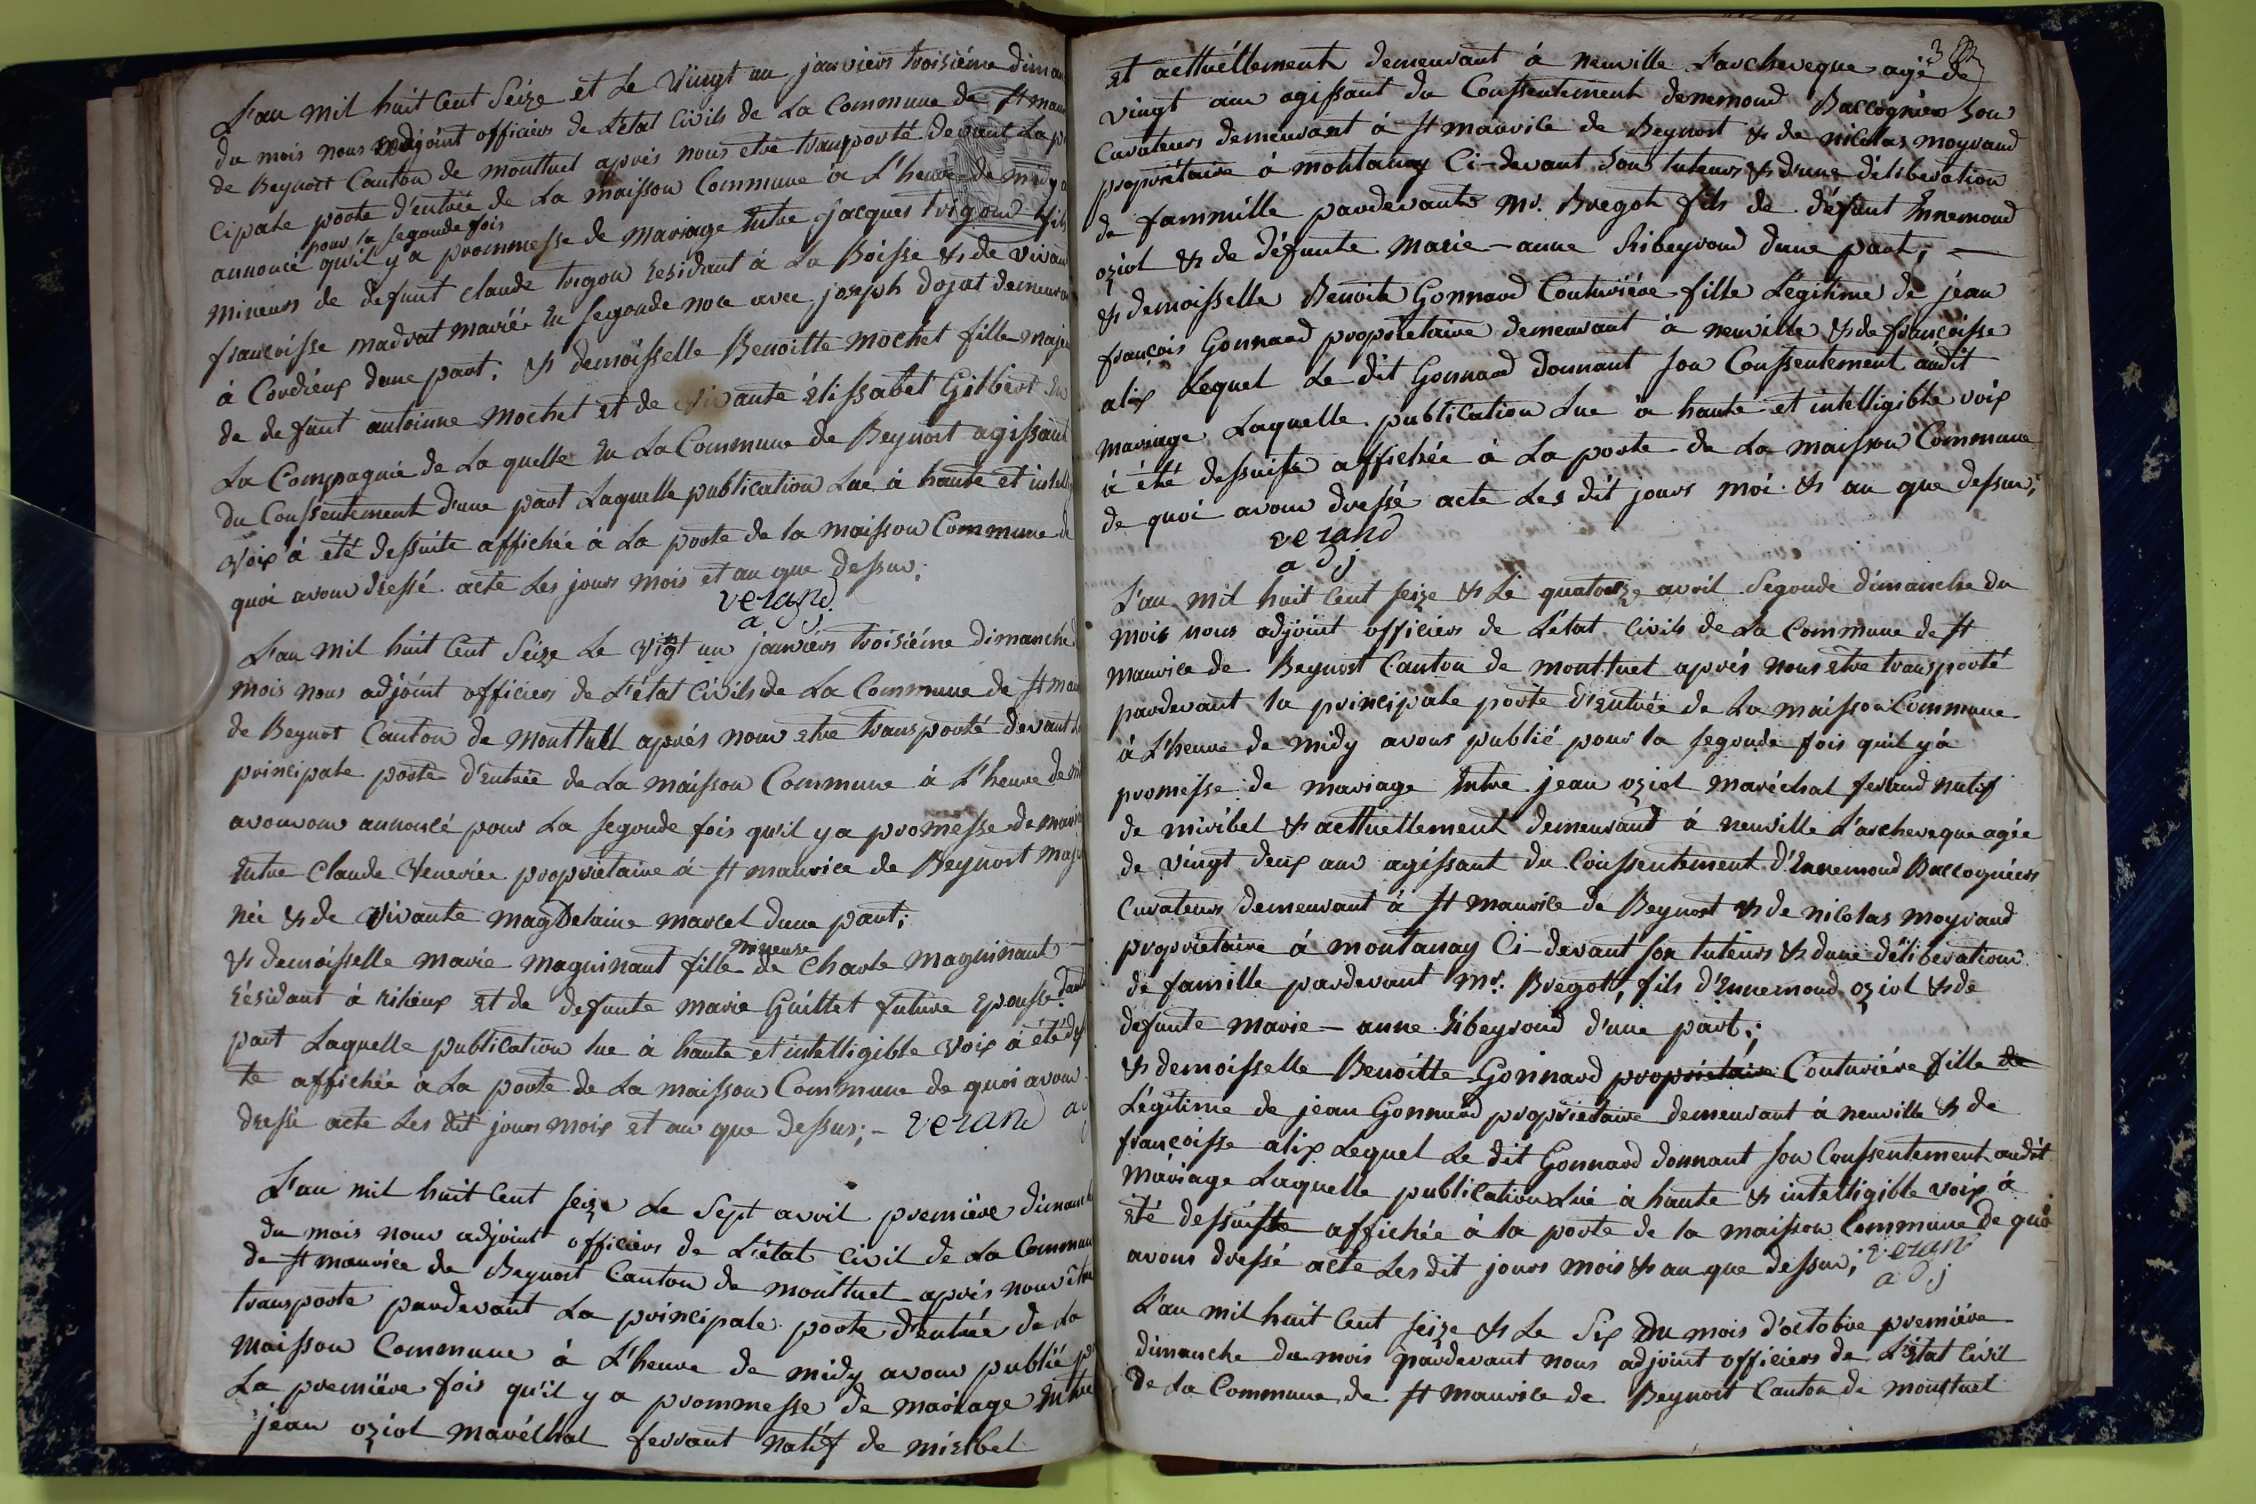 L'an mil huit Cent Seize et Le vingt un janviers troisiéme diman
du mois nous adjoint officiers de L'état Civils de La Commune de St mau
de Beynost Canton de montluel aprés nous etre transporté devant La p
cipale porte d'entrée de La maisson Commune a L'heure de midy a
pour la segonde fois
annoncé qu'il y a prommesse de mariage Entre jacques trigon fils
mineurs de defunt claude trigon residant à La Boisse & de vivan
françoisse madrat mariée en segonde noce avec joseph dojat demeuran
à Cordieux dune part. & demoisselle Benoitte mochet fille maje
de defunt antoinne mochet et de vivante Elissabet Gilbert En
La Compagnie de La quelle En La Commune de Beynost agissant
du Conssentement d'une part Laquelle publication Lue à haute et intel
voix à été dessuite affichée à La porte de la maisson Commune de
quoi avons dressé acte Les jours mois et an que dessus;
verand
adj
L'an mil huit Cent Seize Le vigt un janviers troisiéme dimanche d
mois nous adjoint officiers de L'état Civils de La Commune de St mau
de Beynot Canton de montluell aprés nous etre transporté devant La
principale porte d'entrée de La maisson Commune à L'heure de mi
avonvons annoncé pour La segonde fois qu'il y a promesse de maria
Entre Claude Veneriée propriétaire à St maurice de Beynost maje
née & de vivante magdelaine marcel dune part;
mineuse
& demoisselle marie maguinant fille de Charle maguinant
résidant à rilieux et de defunte marie Guittet future Epousse dautr
part Laquelle publication lue à haute et intelligible voix à été dess
te affichée à La porte de La maisson Commune de quoi avons
dressé acte Les dit jours mois et an que dessus; - verand ad
L'an mil huit Cent seize Le Sept avril premiére dimanch
du mois nous adjoint officiers de L'état Civil de La Commun
de St maurice de Beynost Canton de montluel aprés nous être
transporte pardevant La principale porte d'Entrée de La
maisson Commune à L'heure de midy avons publié po
La premiére fois qu'il y a prommesse de mariage Entre
jean oziol maréchal ferrant natif de miribel
et acttuéllement demeurant à neuville Larcheveque agé de
vingt ans agissant du Conssentement denemond Baccogniers Son
Curateurs demeurant à St maurice de Beynost & de nicolas moyrand
propriétaire à montanay Ci-devant son tuteurs & d'une délibération
de fammille pardevants Mr. Bregot fils de défunt Ennemond
oziol & de défunte marie-anne Ribeyrond dune part; —
& demoisselle Benoite Gonnard Couturiére fille Légitime de jean
françois Gonnard propriétaire demeurant à neuville & de françoisse
alix Lequel Le dit Gonnard donnant son Conssentement àudit
mariage Laquelle publication Lue à haute et intelligible voix
à été dessuite affichée à La porte de La maisson Commune
de quoi avons dressé acte Les dit jours moi & an que dessus;
verand
adj
L'an mil huit Cent seize & Le quatorze avril Segonde dimanche du
mois nous adjoint officiers de L'état Civils de La Commune de St
maurice de Beynost Canton de montluel aprés nous être transporté
pardevant la principale porte d'Entrée de La maisson Commune
à L'heure de midy avons publié pour la segonde fois qu'il y'à
promesse de mariage Entre jean oziol maréchal ferand natif
de miribel & acttuellement demeurand à neuville L'archeveque agée
de vingt deux ans agissant du Conssentement d'Ennemond Baccogniérs
Curateurs demeurant à St maurice de Beynost & de nicolas moyrand
propriétaire à montanay Ci-devant son tuteurs & dune délibérations
de famille pardevant Mr. Bregott, fils d'Ennemond oziol & de
defunte marie-anne Ribeyrond d'une part;
& demoisselle Benoitte Gonnard propriétaire Couturiére fille de
Légitime de jean Gonnard propriétaire demeurant à neuville & de
françoisse alix Lequel Le dit Gonnard donnant son Conssentement audit
màriage Laquelle publication Lue à haute & intelligible voix à
eté dessuiste affichée à la porte de la maisson Commune de quoi
avons dressé acte Les dit jours mois & an que dessus; verand
adj
L'an mil huit Cent seize & Le Six du mois d'octobre premiére
dimanche du mois pardevant nous adjoint officiers de L'état Civil
de La Commune de St maurice de Beynost Canton de montluel